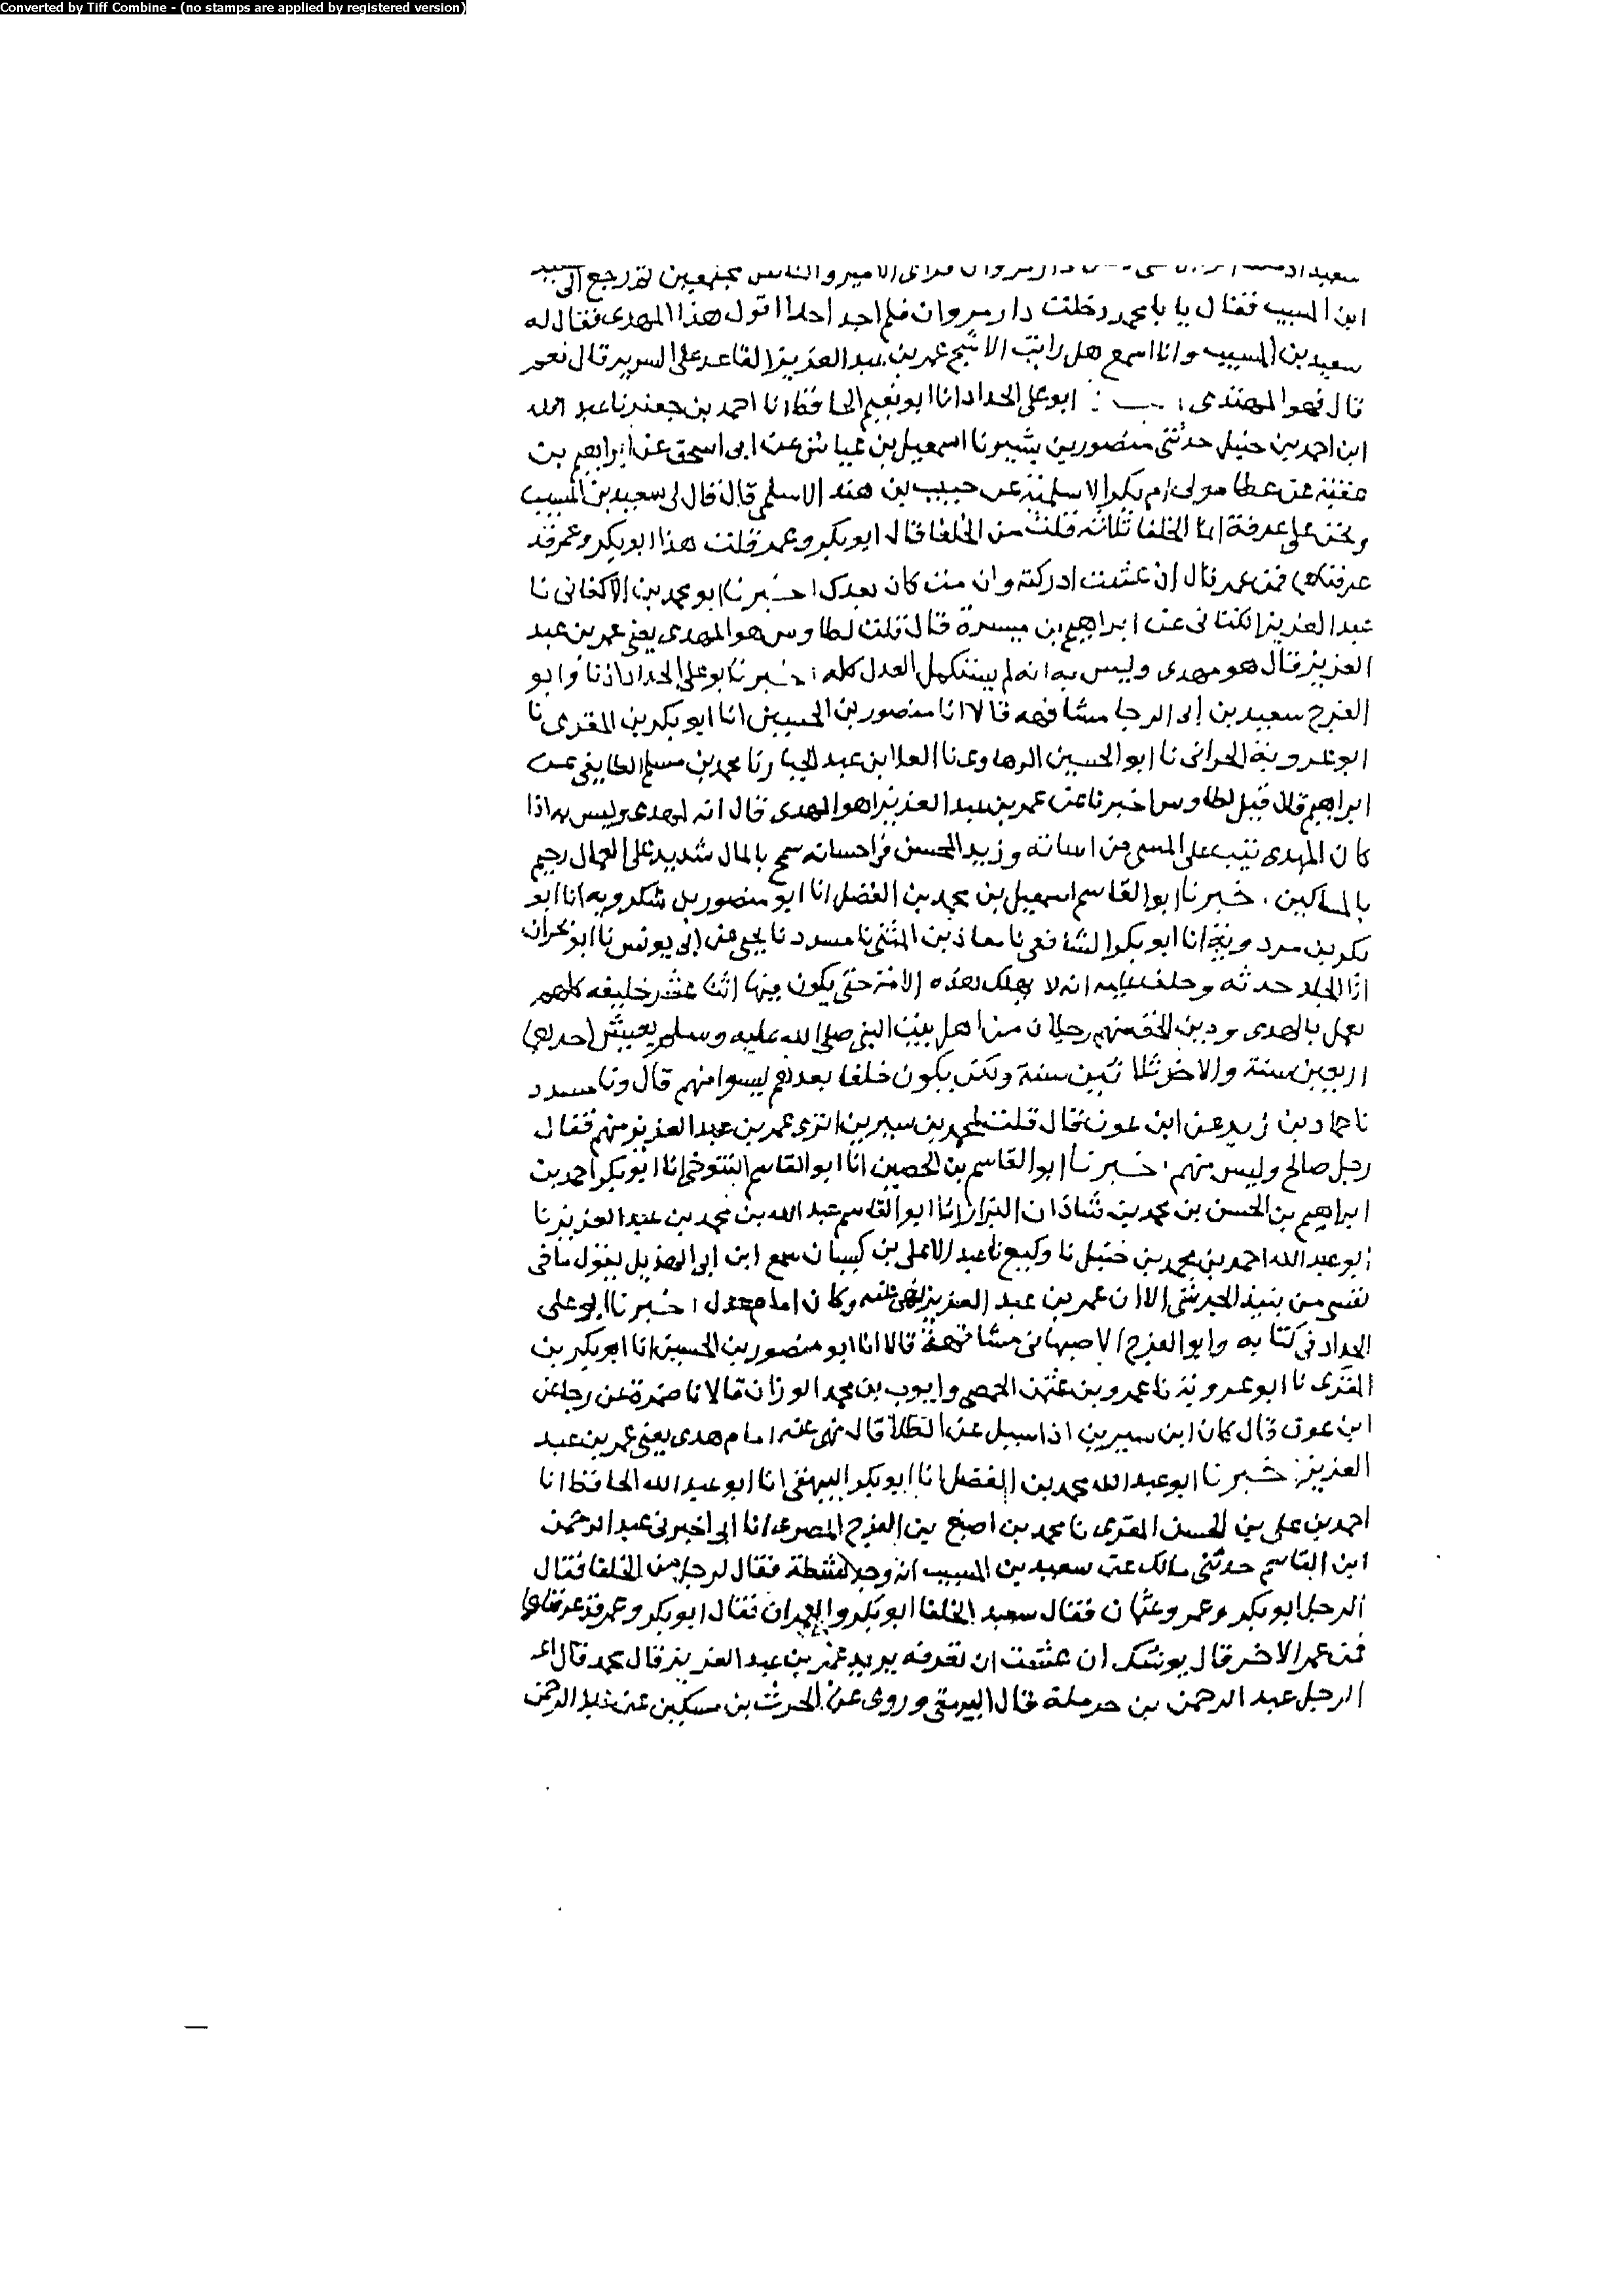 Converted by Tiff Combine - (no stamps are applied by registered version)
سعيد دار مروان الامير والناس مجتمعين ثم رجع الى سعيد
ابن المسيب فقال يا با محمد دخلت دار مروان فلم اجد احدا اقول هذا المهدى فقال له
سعيد بن المسيب وانا اسمع هل رايت الاشج عمر بن عبد العزيز القاعد على السرير قال نعم
قال فهو المهتدى ابو على الحداد انا ابو نعيم الحافظ انا احمد بن جعفر نا عبد الله
ابن احمد بن حنبل حدثنى منصور بن بشير نا اسمعيل بن عياش عن ابى اسحق عن ابراهيم بن
عقبة عن عطا مولى ام بكر الاسلمية عن حبيب بن هند الاسلمى قال قال لى سعيد بن المسيب
ونحن على عرفة انما الخلفا ثلاثة قلت من الخلفا قال ابو بكر وعمر وعمر قلت هذا ابو بكر وعمر قد
عرفناهما فمن عمر قال ان عشت ادركته وان مت كان بعدك اخبرنا ابو محمد بن الاكفانى نا
عبد العزيز الكتانى عن ابراهيم بن ميسرة قال قلت لطاوس هو المهدى يعنى عمر بن عبد
العزيز قال هو مهدى وليس به انه لم يستكمل العدل كله اخبرنا ابو على الحداد اذنا وابو
الفرج سعيد بن ابى الرجا مشافهه قالا انا منصور بن الحسين انا ابو بكر بن المقرى نا
ابو عروبة الحرانى نا ابو الحسين الرهاوى نا العلا بن عبد الجبار نا محمد بن مسلم الطايفى عن
ابراهيم قال قيل لطاوس اخبرنا عن عمر بن عبد العزيز اهو المهدى قال انه لمهدى وليس به اذا
كان المهدى تيب على المسى من اساته وزيد المحسن فى احسانه سمح بالمال شديد على العمال رحيم
بالمساكين . خبرنا ابو القاسم اسمعيل بن محمد بن الفضل انا ابو منصور بن شكرويه انا ابو
بكر بن مردويه انا ابو بكر الشافعى نا معاذ بن المثنى نا مسدد نا يحيى عن ابى يونس نا ابو بحران
ان ابا الجلد حدثه وحلف عليه انه لا يهلك هذه الامة حتى يكون فيها اثنا عشر خليفه كلهم
يعمل بالهدى ودين الحق منهم رجلان من اهل بيت النبى صلى الله عليه وسلم يعيش احدهما
اربعين سنة والاخر ثلاثين سنة ولكن يكون خلفا بعدهم ليسوا منهم قال ونا مسدد
نا حماد بن زيد عن ابن عون قال قلت لمحمد بن سيرين اترى عمر بن عبد العزيز منهم فقال
رجل صالح وليس منهم . خبرنا ابو القاسم بن الحصين انا ابو القاسم التنوخى انا ابو بكر احمد بن
ابراهيم بن الحسن بن محمد بن شاذان البزاز انا ابو القاسم عبد الله بن محمد بن عبد العزيز نا
ابو عبد الله احمد بن محمد بن حنبل نا وكيع نا عبد الاعلى بن كيسان سمع ابن ابى الهذيل يقول ما فى
نفسى من نبيذ الجر شى الا ان عمر بن عبد العزيز نهى عنه وكان امام عدل . خبرنا ابو على
الحداد فى كتابه وابو الفرج الاصبهانى مشافهة قالا انا ابو منصور بن الحسين انا ابو بكر بن
المقرى نا ابو عروبة نا عمرو بن عثمن الحمصى وايوب بن محمد الوزان قالا نا ضمرة عن رجا عن
ابن عون قال كان ابن سيرين اذا سيل عن الطلا قال نهى عنه امام هدى يعنى عمر بن عبد
العزيز . خبرنا ابو عبد الله محمد بن الفضل انا ابو بكر البيهقى انا ابو عبد الله الحافظ انا
احمد بن على بن الحسن المقرى نا محمد بن اصبغ بن الفرج المصرى انا ابى اخبرنى عبد الرحمن
ابن القاسم حدثنى مالك عن سعيد بن المسيب فقال له رجل من الخلفا فقال
الرجل ابو بكر وعمر وعثمان فقال سعيد الخلفا ابو بكر والعمران فقال ابو بكر وعمر قد عرفناهما
فمن عمر الاخر قال يوشك ان عشت ان تعرفه يريد عمر بن عبد العزيز قال محمد قال
الرجل عبد الرحمن بن حرملة قال البيهقى وروى عن الحرث بن مسكين عن عبد الرحمن